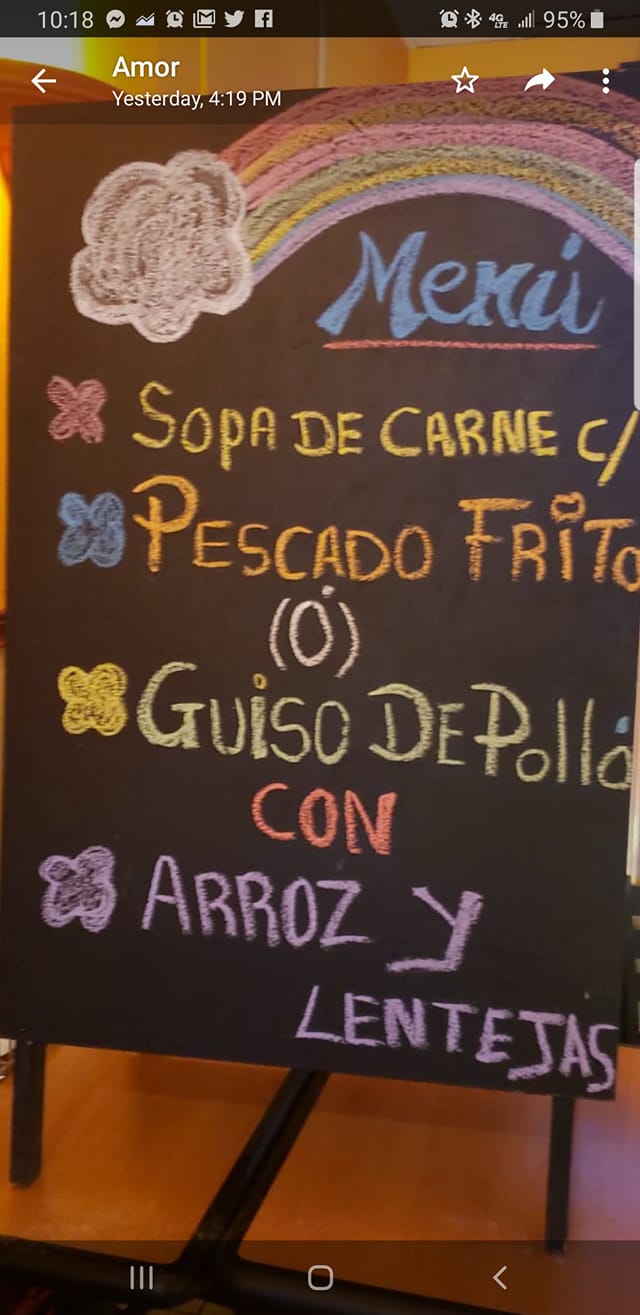 10:18
4G LTE 95%
Amor
Yesterday, 4:19 PM
Menú
SOPA DE CARNE C/
PESCADO FRITO
(Ó)
GUISO DE Pollo
CON
ARROZ Y
LENTEJAS